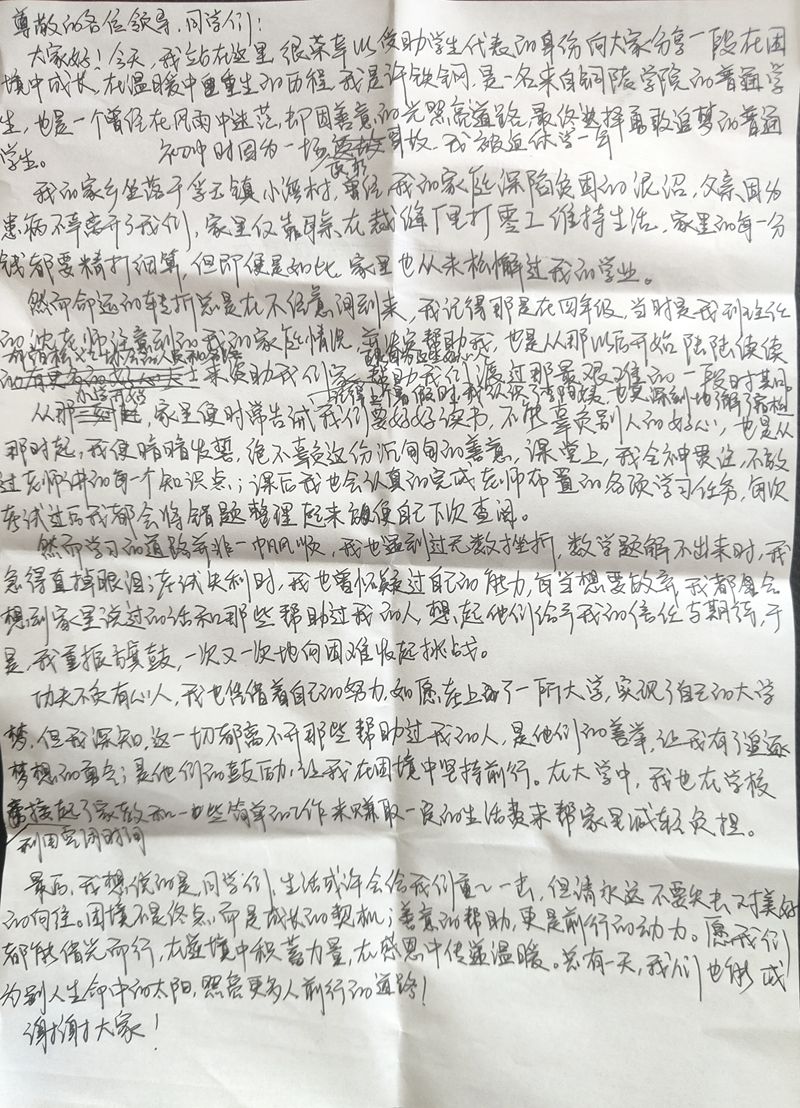 尊敬的各位领导、同学们：
大家好！今天，我站在这里，很荣幸以受助学生代表的身份向大家分享一段在困
境中成长，在温暖中重生的历程。我是许铁钢，是一名来自铜陵学院的普通学
生，也是一个曾经在风雨中迷茫，却因善意的光照亮道路，最终选择勇敢追梦的普通
学生。
初中时因为一场 事故，我被迫休学一年
我的家乡坐落于 镇小 村，曾经，我的家庭深陷贫困的泥沼，父亲因为
患病不幸离开了我们，家里仅靠母亲在裁缝厂里打零工维持生活，家里的每一分
钱都要精打细算，但即便是如此，家里也从未松懈过我的学业。
然而命运的转折总是在不经意间到来，我记得那是在四年级，当时是我班主任
的 老师注意到的我的家庭情况，并决定帮助我，也是从那以后开始陆陆续续
的 来资助我们家，帮助我们渡过那最艰难的一段时期。
暑假时我认识了 也更深刻地了解了
从那 ，家里便时常告诫我们要好好读书，不能辜负别人的好心，也是从
小学开始
那时起，我便暗暗发誓，绝不辜负这份沉甸甸的善意。课堂上，我全神贯注，不放
过老师讲的每一个知识点；课后我也会认真的完成老师布置的各项学习任务，每次
考试过后我都会将错题整理起来 便自己下次查阅。
然而学习的道路并非一帆风顺，我也遇到过无数挫折，数学题解不出来时，我
急得直掉眼泪；考试失利时，我也曾怀疑过自己的能力，每当想要放弃，我都会
想到家里说过的话和那些帮助过我的人，想起他们给予我的信任与期待，于
是，我重振旗鼓，一次又一次地向困难发起挑战。
功夫不负有心人，我也凭借着自己的努力，如愿考上了一所大学，实现了自己的大学
梦，但我深知，这一切都离不开那些帮助过我的人，是他们的善举，让我有了追逐
梦想的勇气；是他们的鼓励，让我在困境中坚持前行。在大学中，我也在学校
接起了家教和一些简单的工作来赚取一定的生活费来帮家里减轻负担。
利用空闲时间
最后，我想说的是，同学们，生活或许会给我们重重一击，但请永远不要失去对美好
的向往。困境不是终点，而是成长的契机；善意的帮助，更是前行的动力。愿我们
都能借光而行，在逆境中积蓄力量，在感恩中传递温暖。总有一天，我们也能成
为别人生命中的太阳，照亮更多人前行的道路！
谢谢大家！